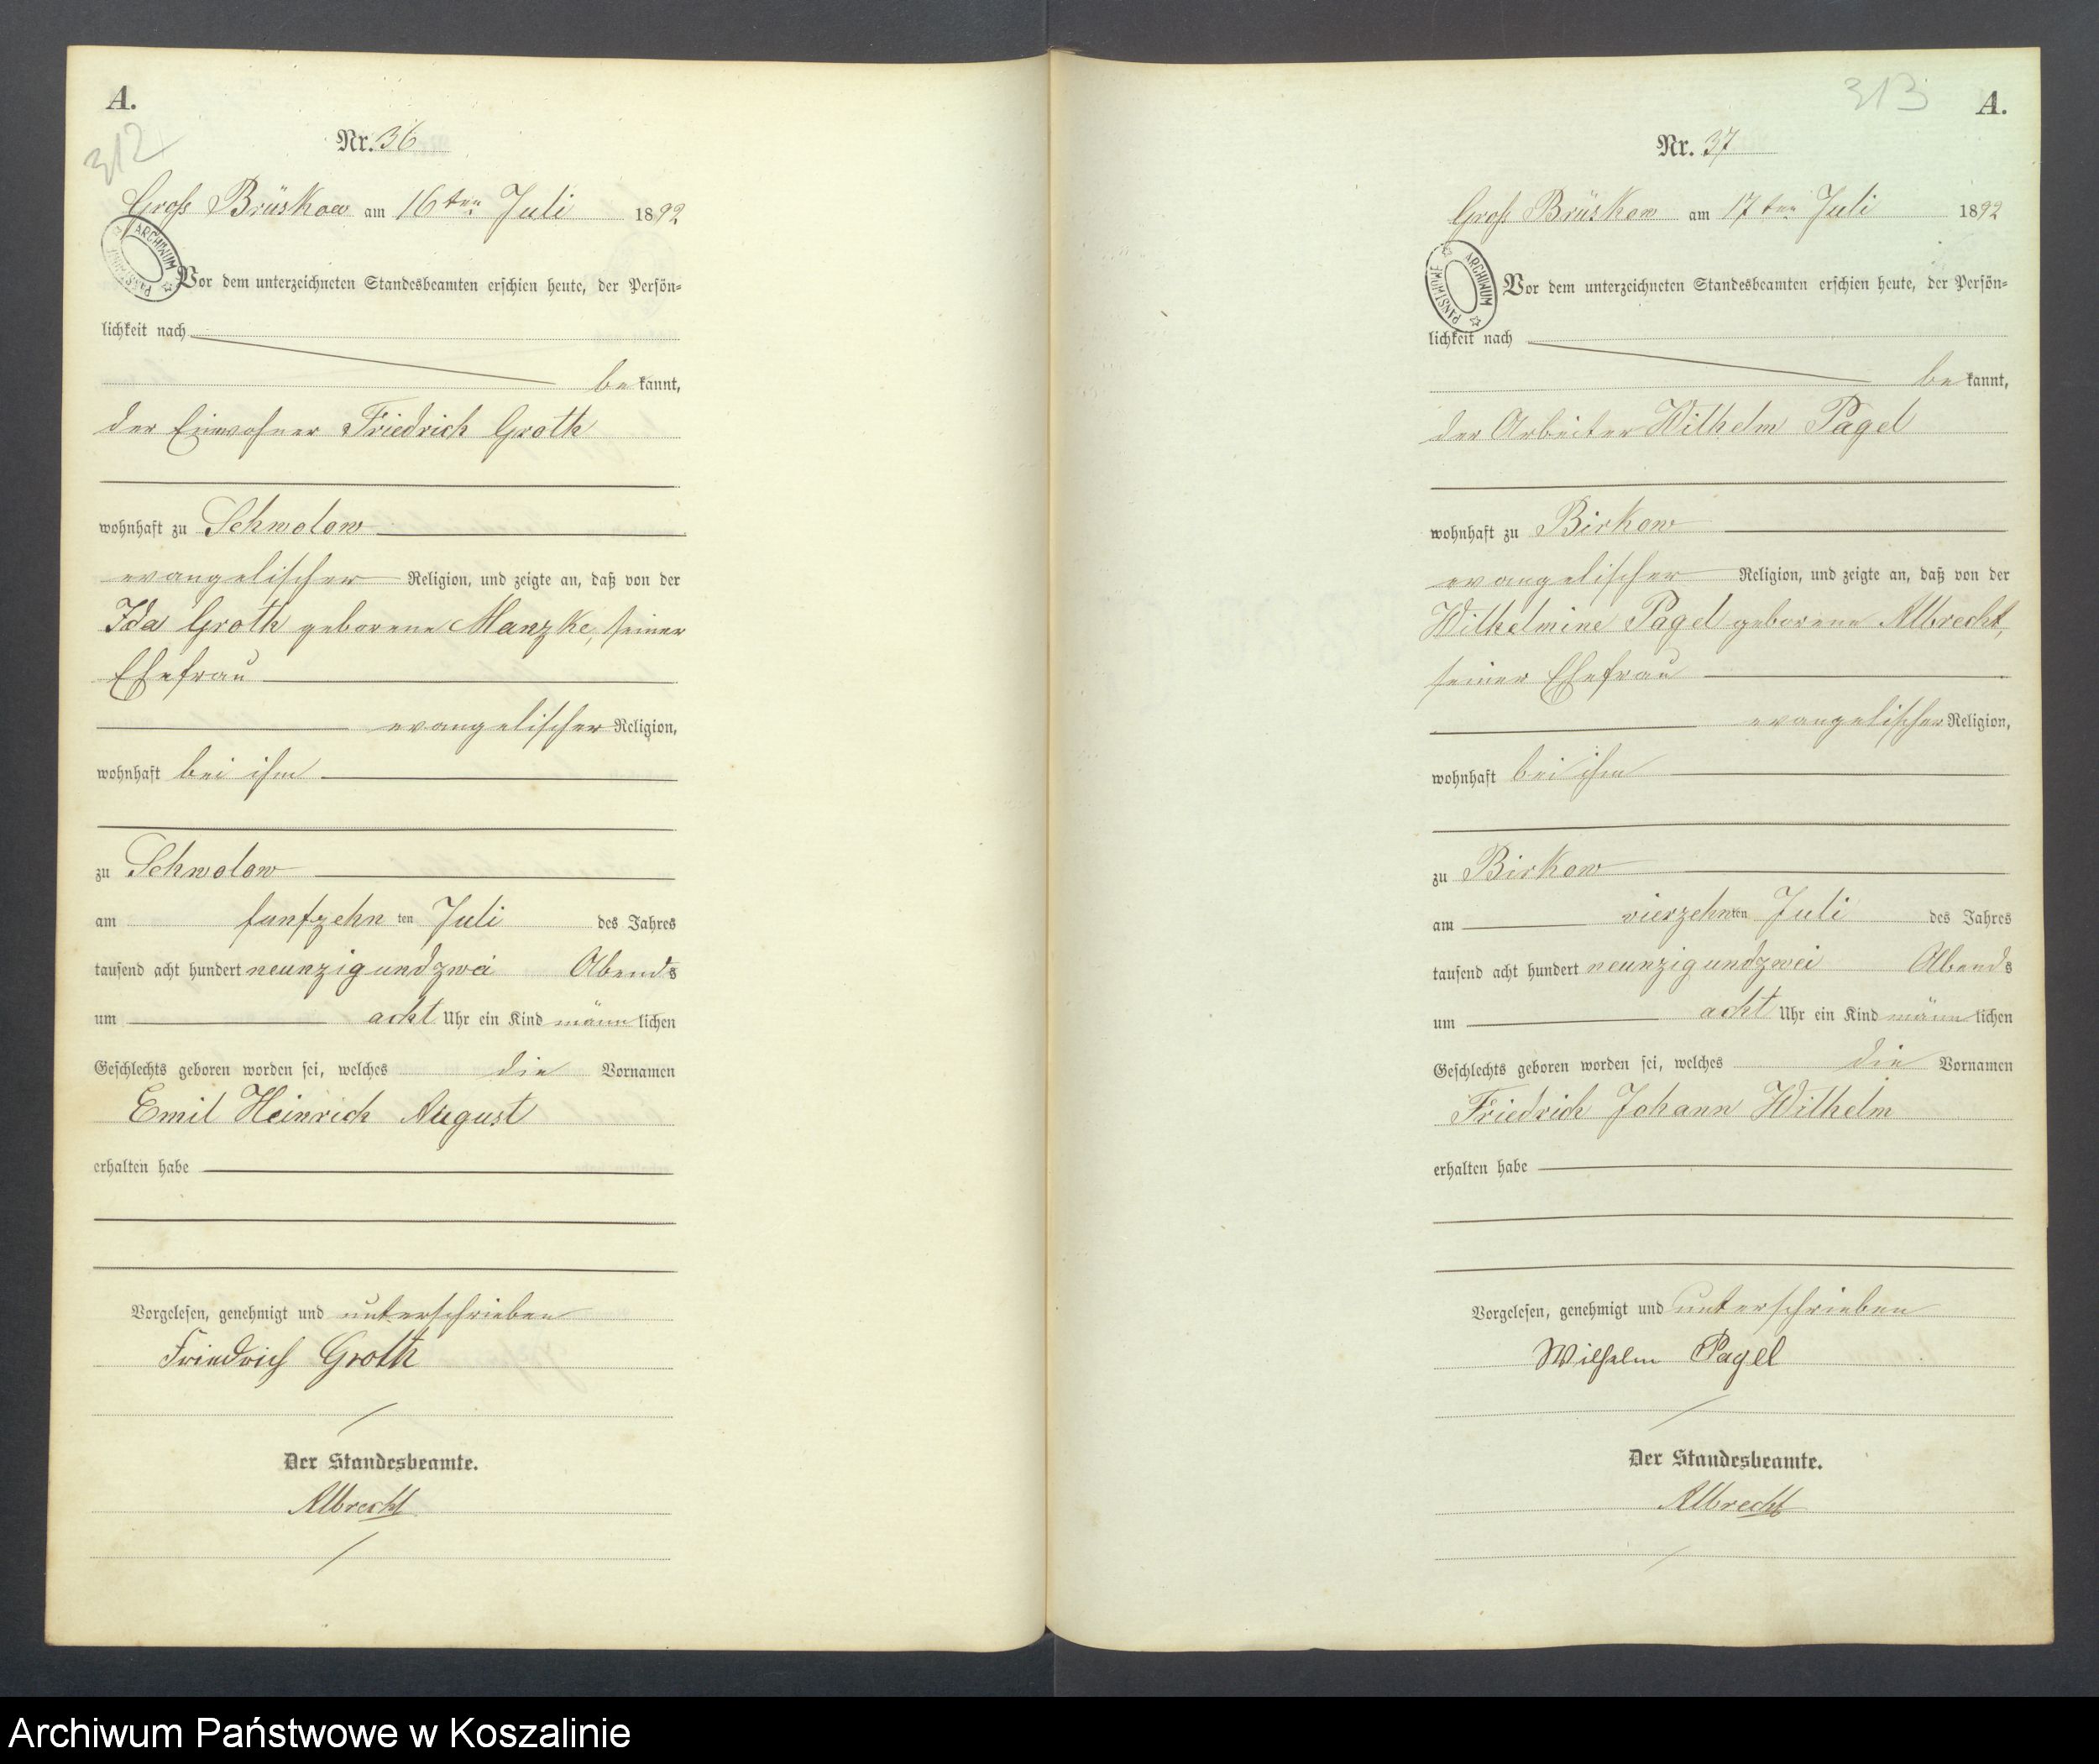 A.
312
Nr. 36
Groß Brüskow am 16ten Juli 1892
ARCHIWUM PAŃSTWOWE
Vor dem unterzeichneten Standesbeamten erschien heute, der Persön=
lichkeit nach
be kannt,
der Einwohner Friedrich Groth
wohnhaft zu Schwolow
evangelischer Religion, und zeigte an, daß von der
Ida Groth geborene Manzke, seiner
Ehefrau
evangelischer Religion,
wohnhaft bei ihm
zu Schwolow
am funfzehn ten Juli des Jahres
tausend acht hundert neunzig und zwei Abends
um acht Uhr ein Kind männ lichen
Geschlechts geboren worden sei, welches die Vornamen
Emil Heinrich August
erhalten habe
Vorgelesen, genehmigt und unterschrieben
Friedrich Groth
Der Standesbeamte.
Albrecht
313
A.
Nr. 37
Groß Brüskow am 17ten Juli 1892
ARCHIWUM PAŃSTWOWE
Vor dem unterzeichneten Standesbeamten erschien heute, der Persön=
lichkeit nach
be kannt,
der Arbeiter Wilhelm Pagel
wohnhaft zu Birkow
evangelischer Religion, und zeigte an, daß von der
Wilhelmine Pagel geborene Albrecht,
seiner Ehefrau
evangelischer Religion,
wohnhaft bei ihm
zu Birkow
am vierzehn ten Juli des Jahres
tausend acht hundert neunzig und zwei Abends
um acht Uhr ein Kind männ lichen
Geschlechts geboren worden sei, welches die Vornamen
Friedrich Johann Wilhelm
erhalten habe
Vorgelesen, genehmigt und unterschrieben
Wilhelm Pagel
Der Standesbeamte.
Albrecht
Archiwum Państwowe w Koszalinie